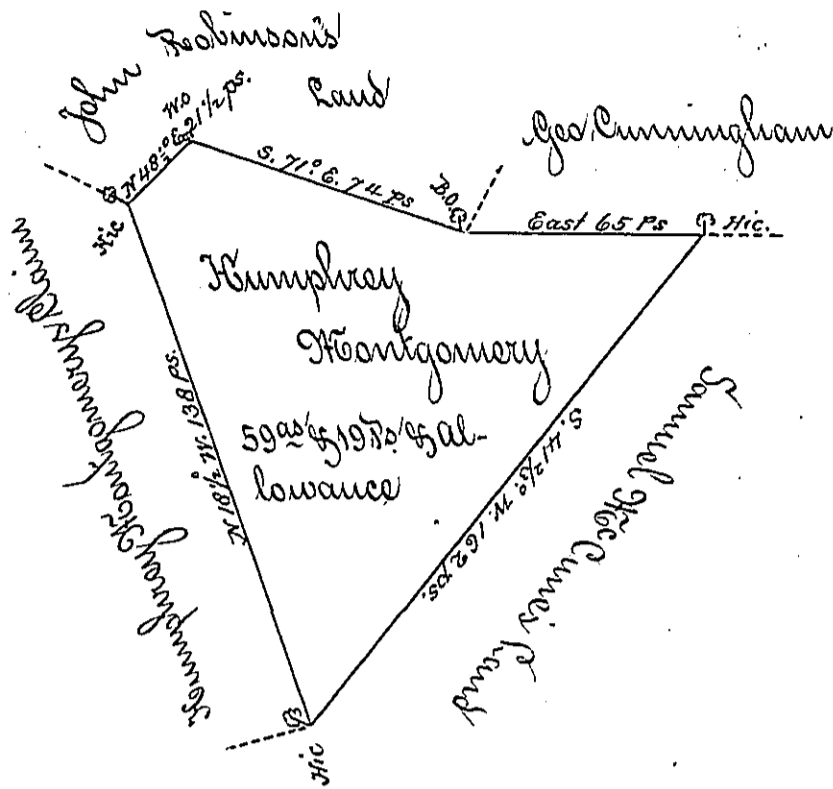 John Robinson's
Land
Geo. Cunningham
N 48° E 21 1/2 ps.
W.O
S. 71° E. 74 ps
B.O.
East 65 Ps
Hic.
Hic
Humphrey
Montgomery
59 as & 19 Ps & Al-
lowance
N 18 1/2° W. 138 Ps.
S. 41 2/3° W. 162 ps.
Humphrey Montgomerys Claim
Samuel McCune's Land
Hic